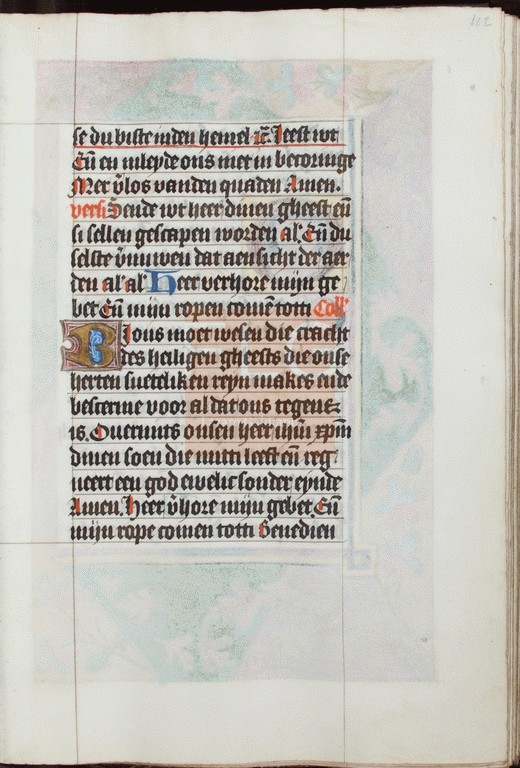 112
se du biste inden hemel ec̄. Leest wt
En̄ en inleyde ons niet in becoringe
Mer v̄los vanden quaden Amen.
vers̄ Sende wt heer dinen gheest en̄
si sellen gescapen worden al'. En̄ du
selste v̄nuwen dat aensicht der aer
den al' al'. Heer verhore mijn ge
bet En̄ mijn ropen come̅ totti Coll'
Bi ons moet wesen die cracht
des heiligen gheests die onse
herten suetelik en reyn makes ende
bescerme voor al dat ons tegen
is. Ouermits onsen heer ih̄m xp̄m
dinen soen die mitti leeft en̄ reg
neert een god ewelic sonder eynde
Amen. Heer v̄hore mijn gebet. En̄
mijn rope comen totti Benedien